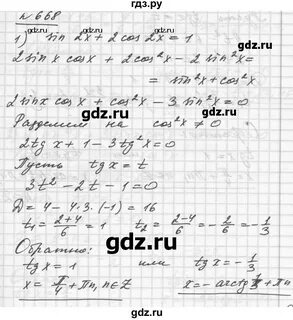 №668
1) sin 2x + 2 cos 2x = 1
2 sin x cos x + 2 cos²x - 2 sin²x =
= sin²x + cos²x
2 sin x cos x + cos²x - 3 sin²x = 0
Разделим на cos²x ≠ 0
2 tg x + 1 - 3 tg²x = 0
Пусть tg x = t
3t² - 2t - 1 = 0
D = 4 - 4·3·(-1) = 16
t₁ = (2+4)/6 = 1 t₂ = (2-4)/6 = -2/6 = -1/3
Обратно:
tg x = 1 или tg x = -1/3
x = π/4 + πn, n∈Z x = -arctg 1/3 + πn
gdz.ru